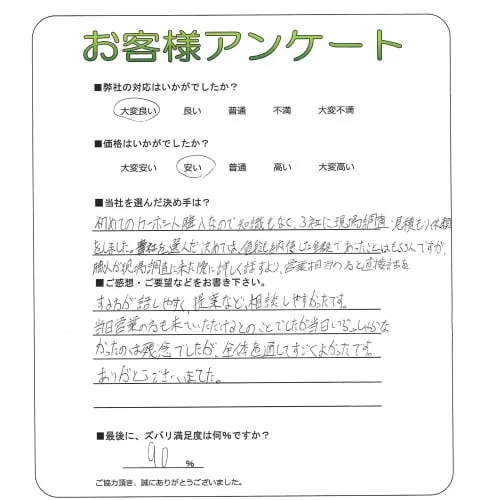 お客様アンケート
■弊社の対応はいかがでしたか?
大変良い 良い 普通 不満 大変不満
■価格はいかがでしたか?
大変安い 安い 普通 高い 大変高い
■当社を選んだ決め手は?
初めてのカーポート購入なので知識もなく、3社に現場調査・見積もり依頼
をしました。貴社を選んだ決めては、値段も納得した金額であったことはもちろんですが、
職人が現場調査に来た際に詳しく話すより、営業担当の方と直接話を
■ご感想・ご要望などをお書き下さい。
する方が話しやすく、提案など、相談しやすかったです。
当日営業の方も来ていただけるとのことでしたが当日いらっしゃらな
かったのは残念でしたが、全体を通してすごくよかったです。
ありがとうございました。
■最後に、ズバリ満足度は何%ですか?
90 %
ご協力頂き、誠にありがとうございました。